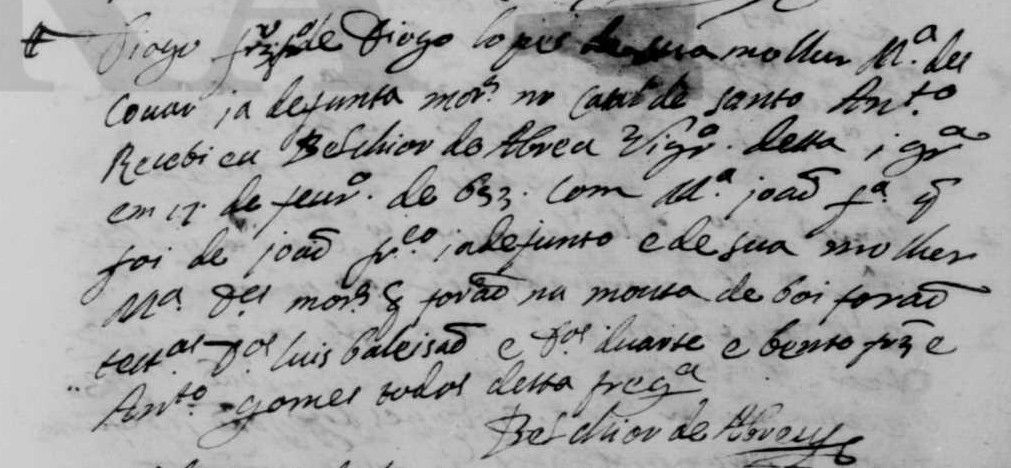 Diogo frz fº de Diogo lopes de sua molher Mª del
Couar ja defunta morˢ no Casal de santo Antº
Recebi eu Belchior de Abreu Vigrº. desta igrª
em 17 de feurº. de 633. Com Mª joaõ fª q̃
foi de joaõ frᶜᵒ jadefunto e de sua molher
Mª Dˡˢ morˢ q̃ foraõ na mouta de boi foraõ
testᵃˢ Dᵒˢ luis baleisaõ e Dᵒˢ duarte e bento frz e
Antᵒ gomes todos desta fregª
Belchior de Abreu